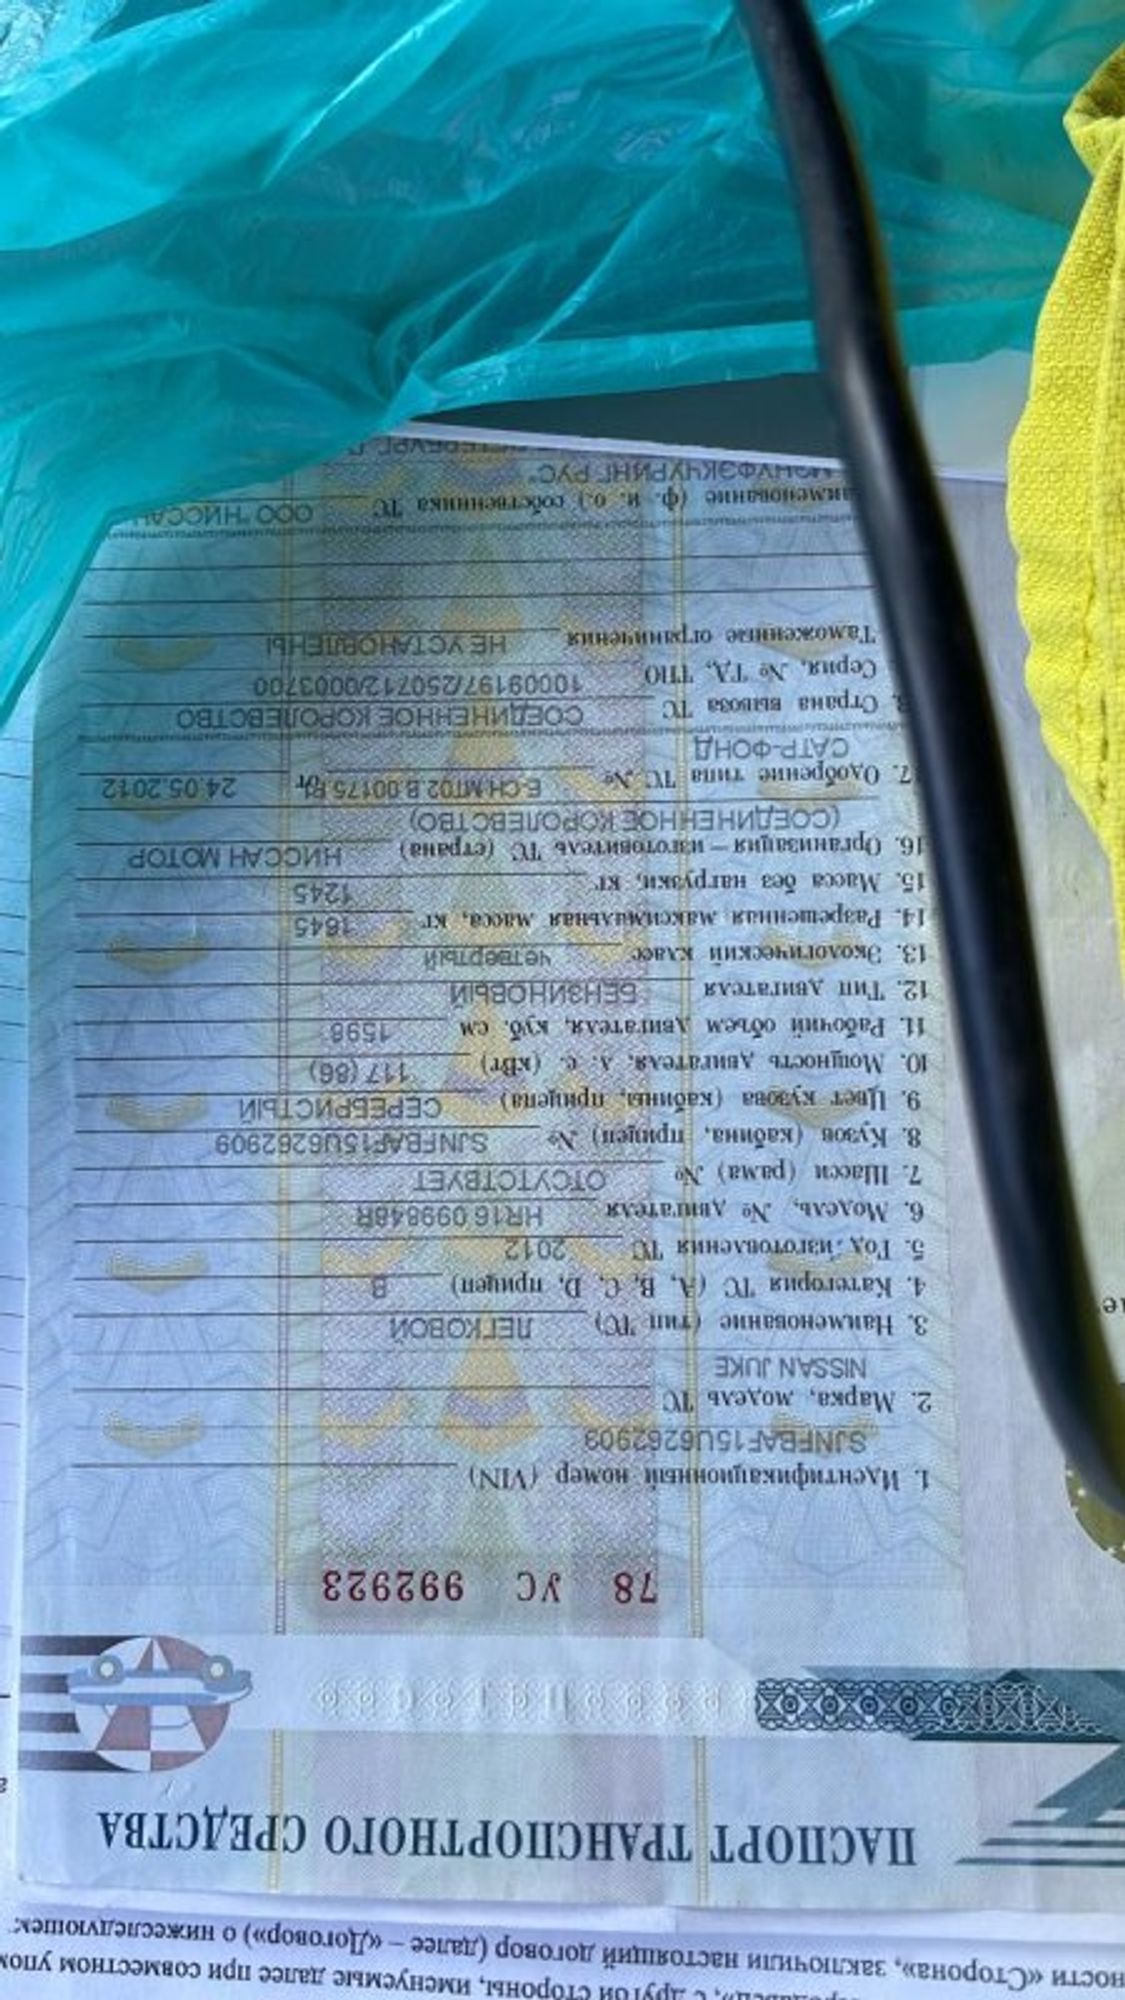 ПАСПОРТ ТРАНСПОРТНОГО СРЕДСТВА
78 УС 992923
1. Идентификационный номер (VIN)
SJNFBAF15U6262909
2. Марка, модель ТС
NISSAN JUKE
3. Наименование (тип ТС) ЛЕГКОВОЙ
4. Категория ТС (A, B, C, D, прицеп) B
5. Год изготовления ТС 2012
6. Модель, № двигателя HR16 099848R
7. Шасси (рама) № ОТСУТСТВУЕТ
8. Кузов (кабина, прицеп) № SJNFBAF15U6262909
9. Цвет кузова (кабины, прицепа) СЕРЕБРИСТЫЙ
10. Мощность двигателя, л. с. (кВт) 117 (86)
11. Рабочий объем двигателя, куб. см 1598
12. Тип двигателя БЕНЗИНОВЫЙ
13. Экологический класс четвертый
14. Разрешенная максимальная масса, кг 1645
15. Масса без нагрузки, кг 1245
16. Организация – изготовитель ТС (страна) НИССАН МОТОР
(СОЕДИНЕННОЕ КОРОЛЕВСТВО)
17. Одобрение типа ТС № E-CH.MT02.B.00175 от 24.05.2012
САТР-ФОНД
Страна вывоза ТС СОЕДИНЕННОЕ КОРОЛЕВСТВО
Серия, № ТД, ТПО 10009197/250712/0003700
Таможенные ограничения НЕ УСТАНОВЛЕНЫ
(ф. и. о.) собственника ТС ООО "НИССАН
МЭНУФЭКЧУРИНГ РУС"
ности «Сторона», заключили настоящий договор (далее – «Договор») о нижеследующем:
с другой стороны, именуемые далее при совместном упом